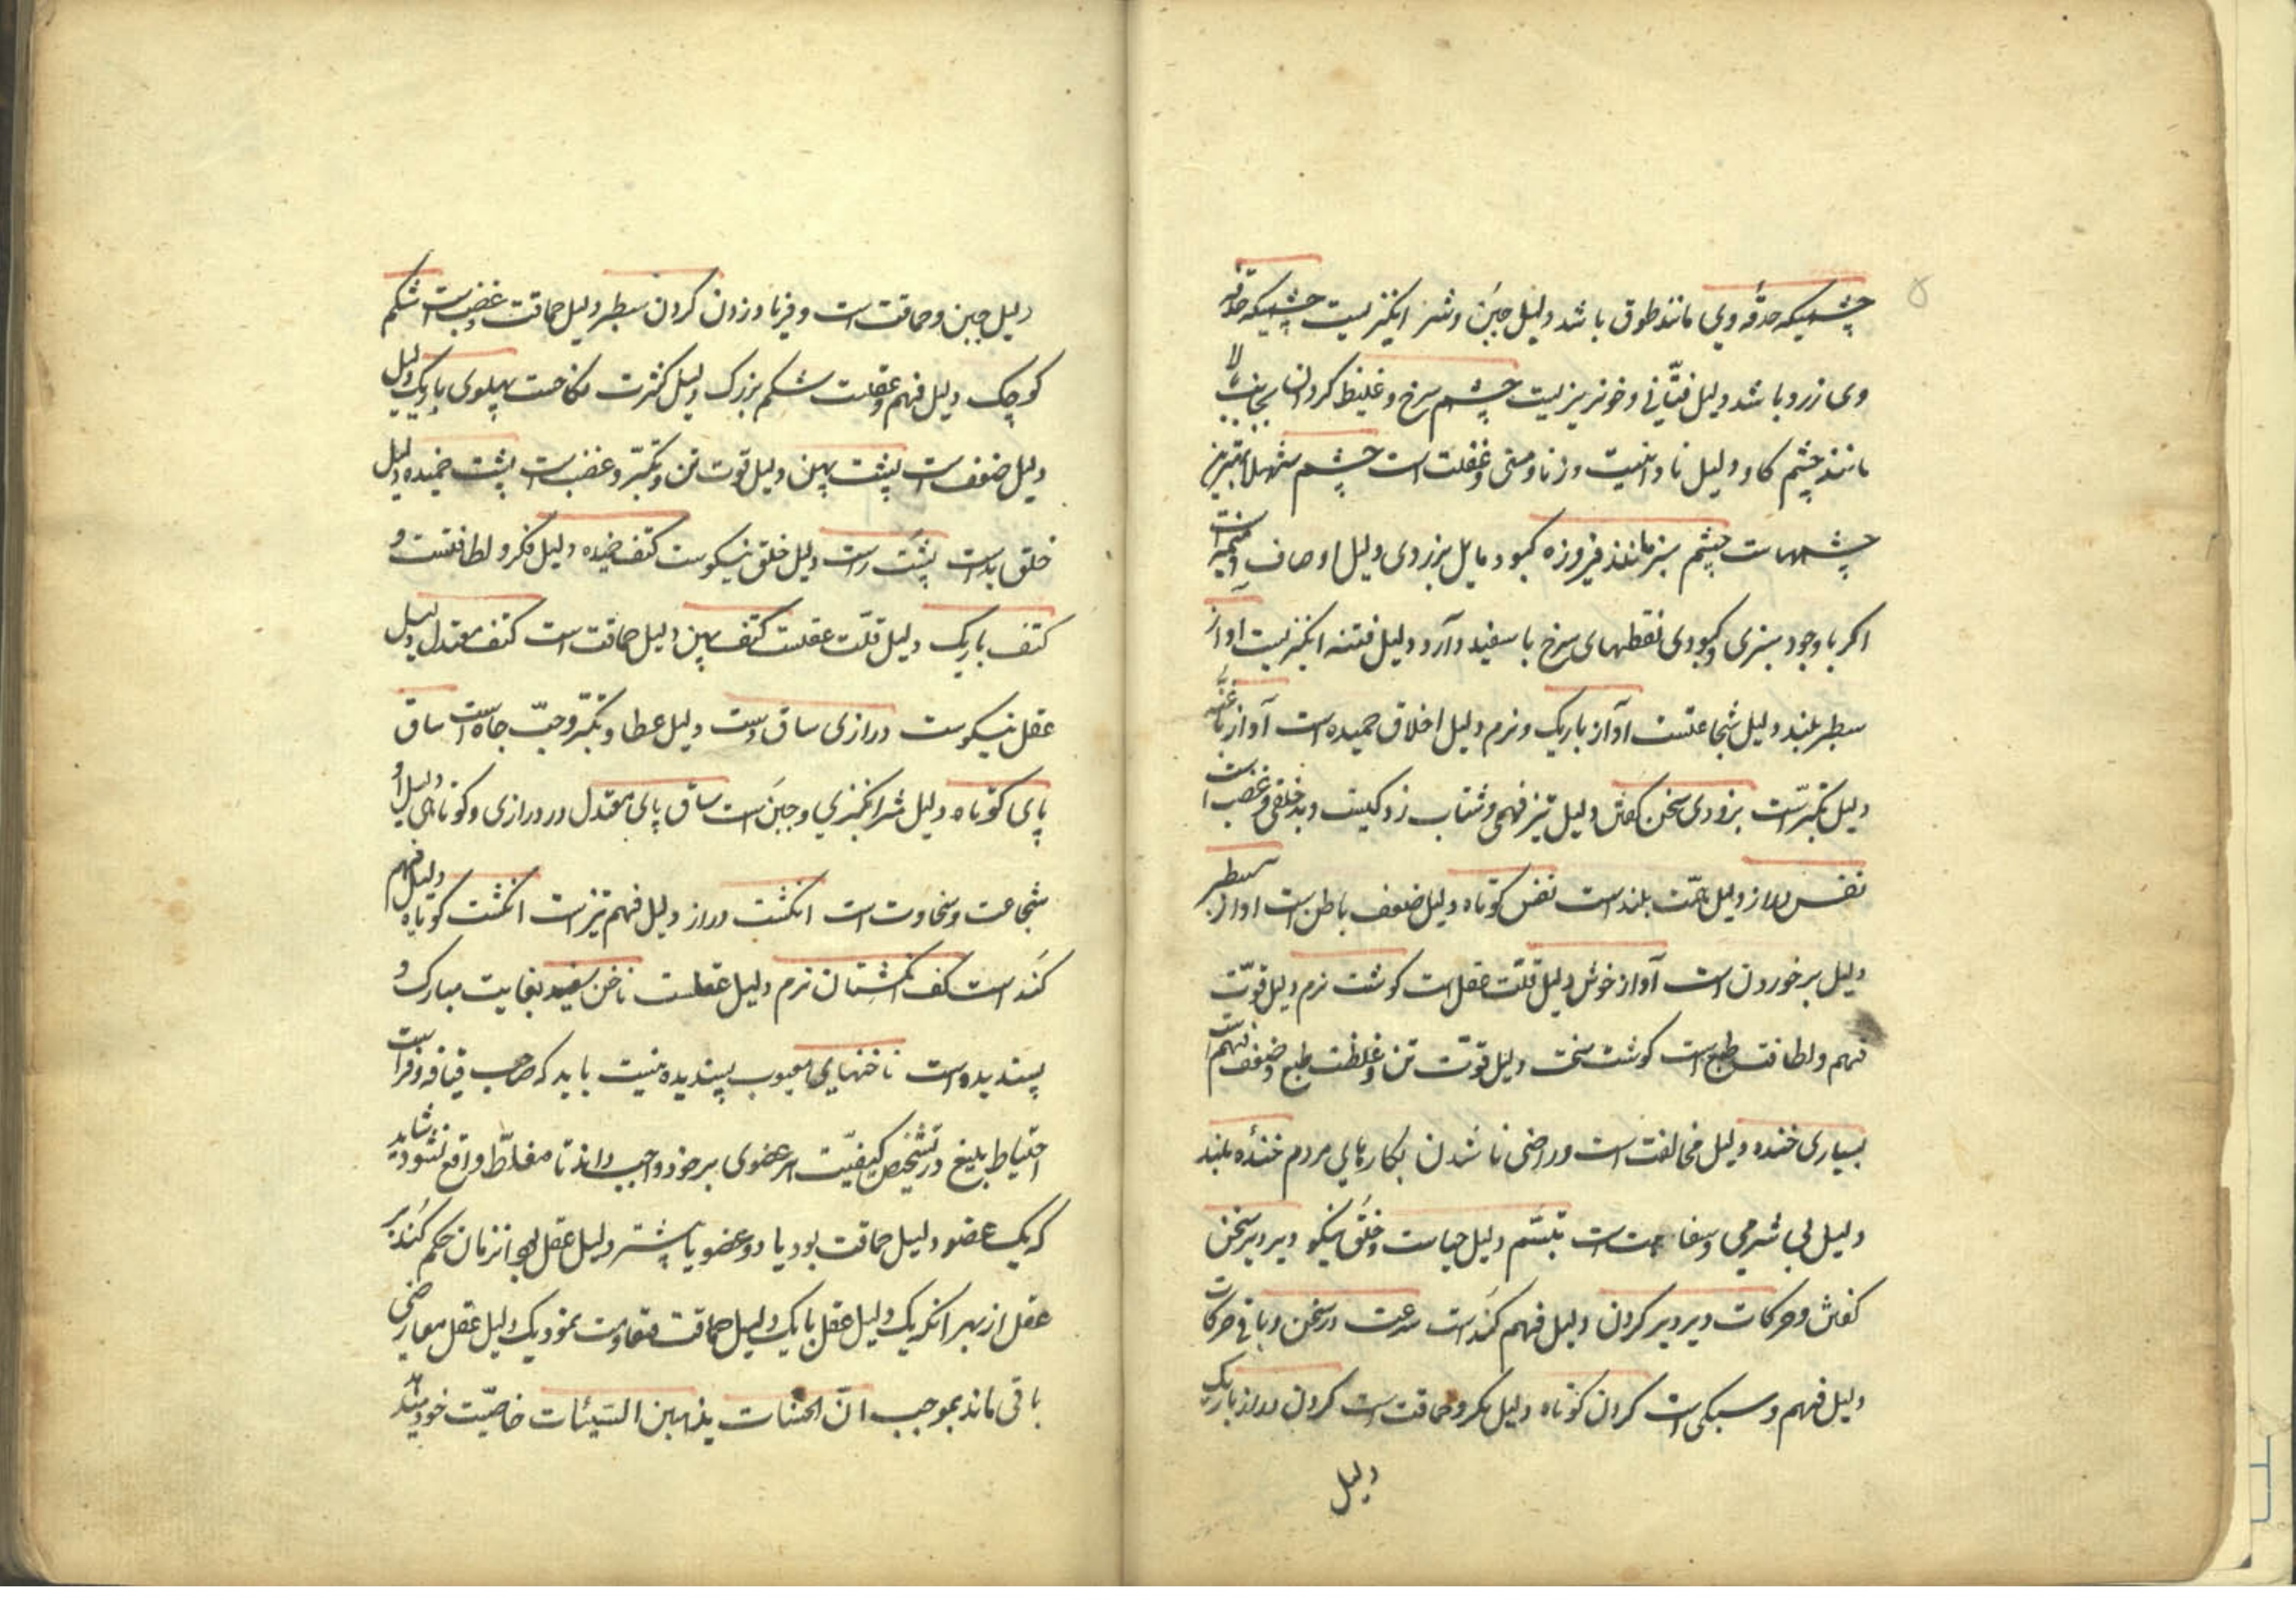 ۵
چشمیکه حدقه وی مانند طوق باشد دلیل جبن و شر انگیزیست چشمیکه حدقه
وی زرد باشد دلیل فتّانی و خونریزیست چشم سرخ و غلیظ کردان بجانب بالا
مانند چشم کاو دلیل نادانیست و زنا و مستی و غفلت است چشم شهلا بهترین
چشمهاست چشم سبز مانند فیروزه کبود مایل بزردی دلیل اوصاف ذمیمه است
اکر با وجود سبزی و کبودی نقطهای سرخ یا سفید دارد دلیل فتنه انگیزیست آواز
سطبر بلند دلیل شجاعتست آواز باریک و نرم دلیل اخلاق حمیده است آواز با غنه
دلیل تکبّر است بزودی سخن کفتن دلیل تیز فهمی و شتاب زدکیست و بد خلقی و غضب است
نفس دراز دلیل همّت بلند است نفس کوتاه دلیل ضعف باطن است اواز سطبر
دلیل برخوردن است آواز خوش دلیل قلّت عقل است کوشت نرم دلیل قوّت
فهم و لطافت طبع است کوشت سخت دلیل قوّت تن و غلظت طبع و ضعف فهم است
بسیاری خنده دلیل مخالفت است و راضی ناشدن بکارهای مردم خندهٔ بلند
دلیل بی شرمی و سفاهت است تبسّم دلیل حیاست و خلق نیکو دیر دیر سخن
کفتن و حرکات دیر دیر کردن دلیل فهم کند است سرعت در سخن و باقی حرکات
دلیل فهم و سبکی است کردن کوتاه دلیل مکر و حماقت است کردن دراز باریک
دلیل
دلیل جبن و حماقت است و فریاد زدن کردن سطبر دلیل حماقت و غضب است شکم
کوچک دلیل فهم و عقلست شکم بزرک دلیل کثرت نکاحست پهلوی باریک دلیل
دلیل ضعف است پشت پهن دلیل قوت تن و تکبّر و غضب است پشت خمیده دلیل
خلق بد است پشت راست دلیل خلق نیکوست کتف خمیده دلیل فکر و لطافتست و
کتف باریک دلیل قلّت عقلست کتف پهن دلیل حماقت است کتف معتدل دلیل
عقل نیکوست درازی ساق دست دلیل عطا و تکبّر و حبّ جاه است ساق
پای کوتاه دلیل شر انگیزی و جبن است ساق پای معتدل در درازی و کوتاهی دلیل
شجاعت و سخاوت است انکشت دراز دلیل فهم تیز است انکشت کوتاه دلیل فهم
کند است کف انکشتان نرم دلیل عقلست ناخن سفید بغایت مبارک و
پسندیده است ناخنهای معیوب پسندیده نیست باید که صاحب قیافه و فراست
احتیاط بلیغ در تشخیص کیفیّت هر عضوی بر خود واجب داند تا مغلّط واقع نشود شاید
که یک عضو دلیل حماقت بود یا دو عضو یا پیشتر دلیل عقل بود انزمان حکم کند بر
عقل از بهر انکه یک دلیل عقل با یک دلیل حماقت مقاومت نمود یک دلیل عقل بی معارضی
باقی ماند بموجب انّ الحسنات یذهبن السّیئات خاصیّت خود